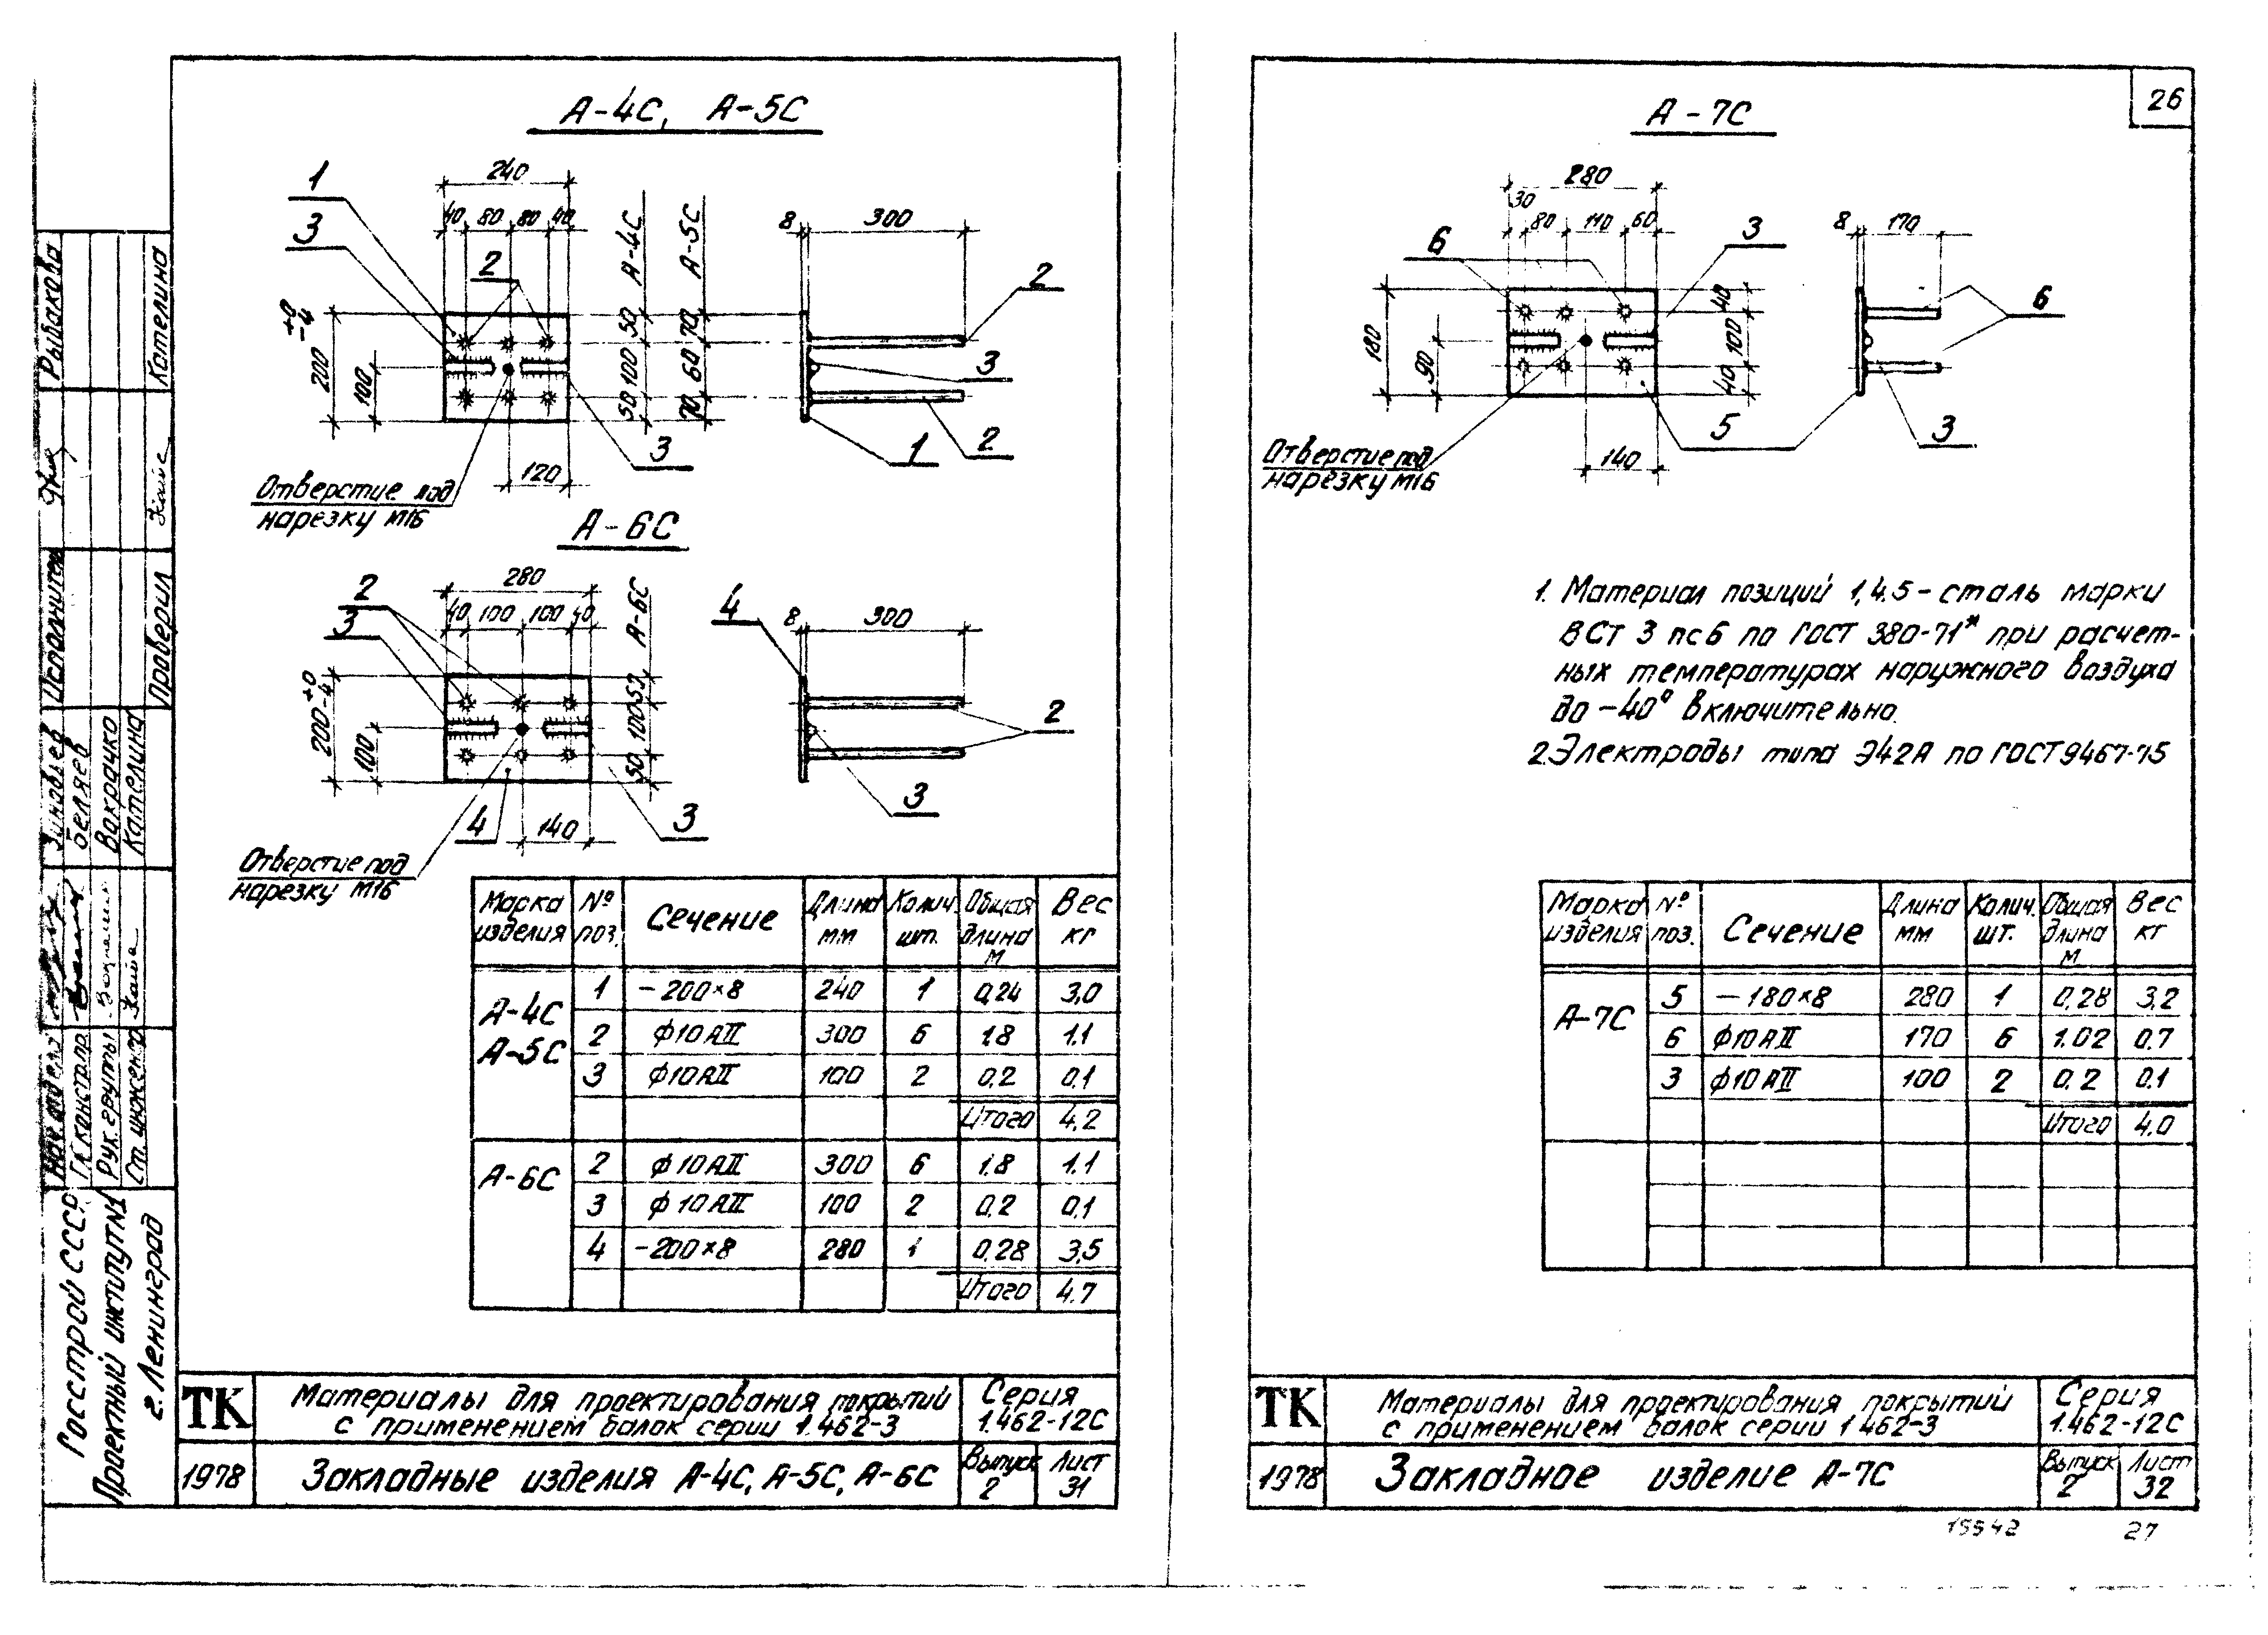 А-4С, А-5С
240
40 80 80 40
1
3
2
А-4С
А-5С
50 100 50
70 60 70
200 +0 -4
100
120
3
Отверстие под
нарезку М16
8 300
2
3
1
2
А-6С
280
40 100 100 40
А-6С
2
3
200 +0 -4
100
50 100 50
4
140
3
Отверстие под
нарезку М16
4
8 300
2
3
Марка изделия № поз. Сечение Длина мм Колич. шт. Общая длина м Вес кг
А-4С А-5С
1 -200×8 240 1 0,24 3,0
2 ф10АII 300 6 1.8 1.1
3 ф10АII 100 2 0.2 0.1
Итого 4.2
А-6С
2 ф10АII 300 6 1.8 1.1
3 ф10АII 100 2 0.2 0.1
4 -200×8 280 1 0,28 3,5
Итого 4.7
ТК
Материалы для проектирования покрытий
с применением балок серии 1.462-3
Серия
1.462-12С
1978
Закладные изделия А-4С, А-5С, А-6С
Выпуск 2
Лист 31
Рыбакова
Кателина
Исполнител
Проверил
Зиновьев
Беляев
Вахрачко
Кателина
Нач. отдела
Гл. констр. пр.
Рук. группы
Ст. инженер
Госстрой СССР
Проектный институт №1
г. Ленинград
26
А-7С
280
30
80 110 60
6
3
180
90
40 100 40
5
140
Отверстие под
нарезку М16
8 170
6
3
1. Материал позиций 1,4.5 - сталь марки
ВСт 3 пс6 по ГОСТ 380-71* при расчет-
ных температурах наружного воздуха
до -40° включительно.
2. Электроды типа Э42А по ГОСТ 9467-75
Марка изделия № поз. Сечение Длина мм Колич. шт. Общая длина м Вес кг
А-7С
5 -180×8 280 1 0,28 3,2
6 ф10АII 170 6 1.02 0.7
3 ф10АII 100 2 0.2 0.1
Итого 4.0
ТК
Материалы для проектирования покрытий
с применением балок серии 1462-3
Серия
1.462-12С
1978
Закладное изделие А-7С
Выпуск 2
Лист 32
15542 27